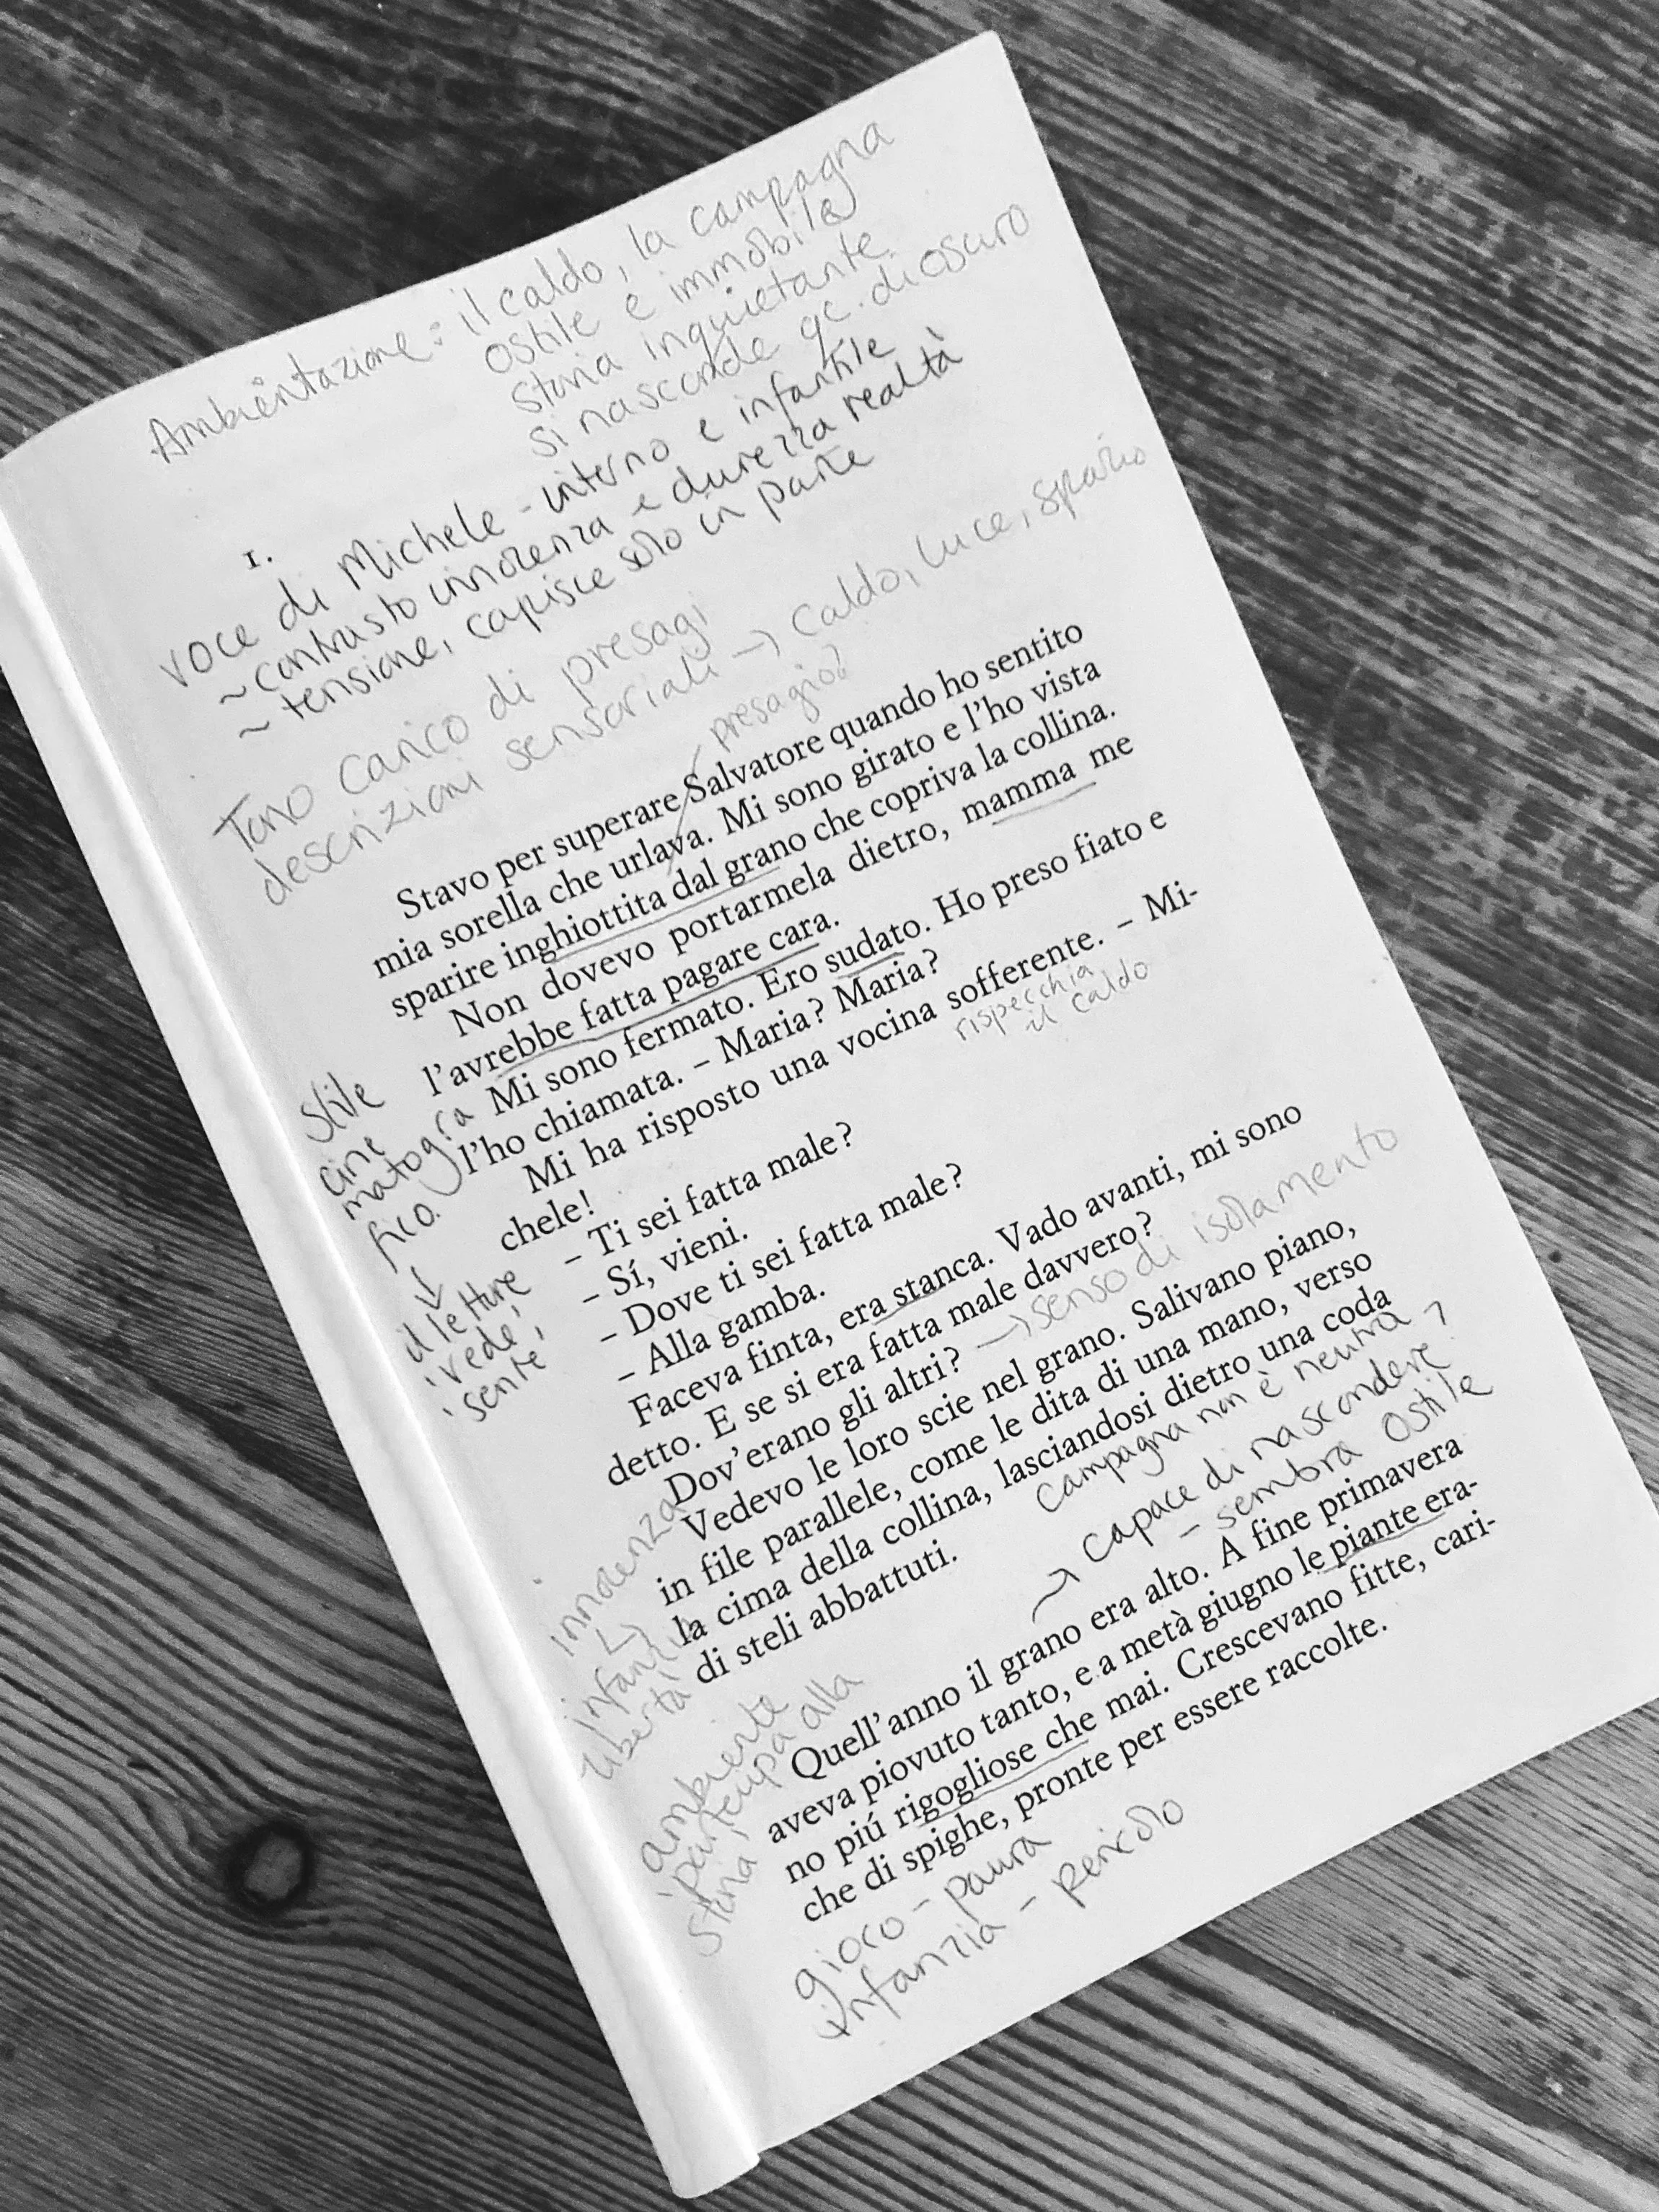 Ambientazione: il caldo, la campagna
ostile e immobile
storia inquietante
si nasconde qc. di oscuro
1.
voce di Michele - interno e infantile
~ contrasto innocenza e durezza realtà
~ tensione, capisce solo in parte
Tono carico di presagi
descrizioni sensoriali → caldo, luce, spazio
presagio?
Stavo per superare Salvatore quando ho sentito
mia sorella che urlava. Mi sono girato e l'ho vista
sparire inghiottita dal grano che copriva la collina.
Non dovevo portarmela dietro, mamma me
l'avrebbe fatta pagare cara.
Mi sono fermato. Ero sudato. Ho preso fiato e
l'ho chiamata. – Maria? Maria?
Mi ha risposto una vocina sofferente. – Mi-
rispecchia
il caldo
chele!
– Ti sei fatta male?
– Sí, vieni.
– Dove ti sei fatta male?
– Alla gamba.
Stile
cine
matogra
fico.
↓
il lettore
'vede',
'sente'
Faceva finta, era stanca. Vado avanti, mi sono
detto. E se si era fatta male davvero?
Dov'erano gli altri? → senso di isolamento
Vedevo le loro scie nel grano. Salivano piano,
in file parallele, come le dita di una mano, verso
la cima della collina, lasciandosi dietro una coda
di steli abbattuti.
campagna non è neutra
→ capace di nascondere
- sembra ostile
innocenza
↳ infanzia
libertà
Quell'anno il grano era alto. A fine primavera
aveva piovuto tanto, e a metà giugno le piante era-
no piú rigogliose che mai. Crescevano fitte, cari-
che di spighe, pronte per essere raccolte.
ambiente
'partecipa' alla
storia
gioco - paura
infanzia - pericolo